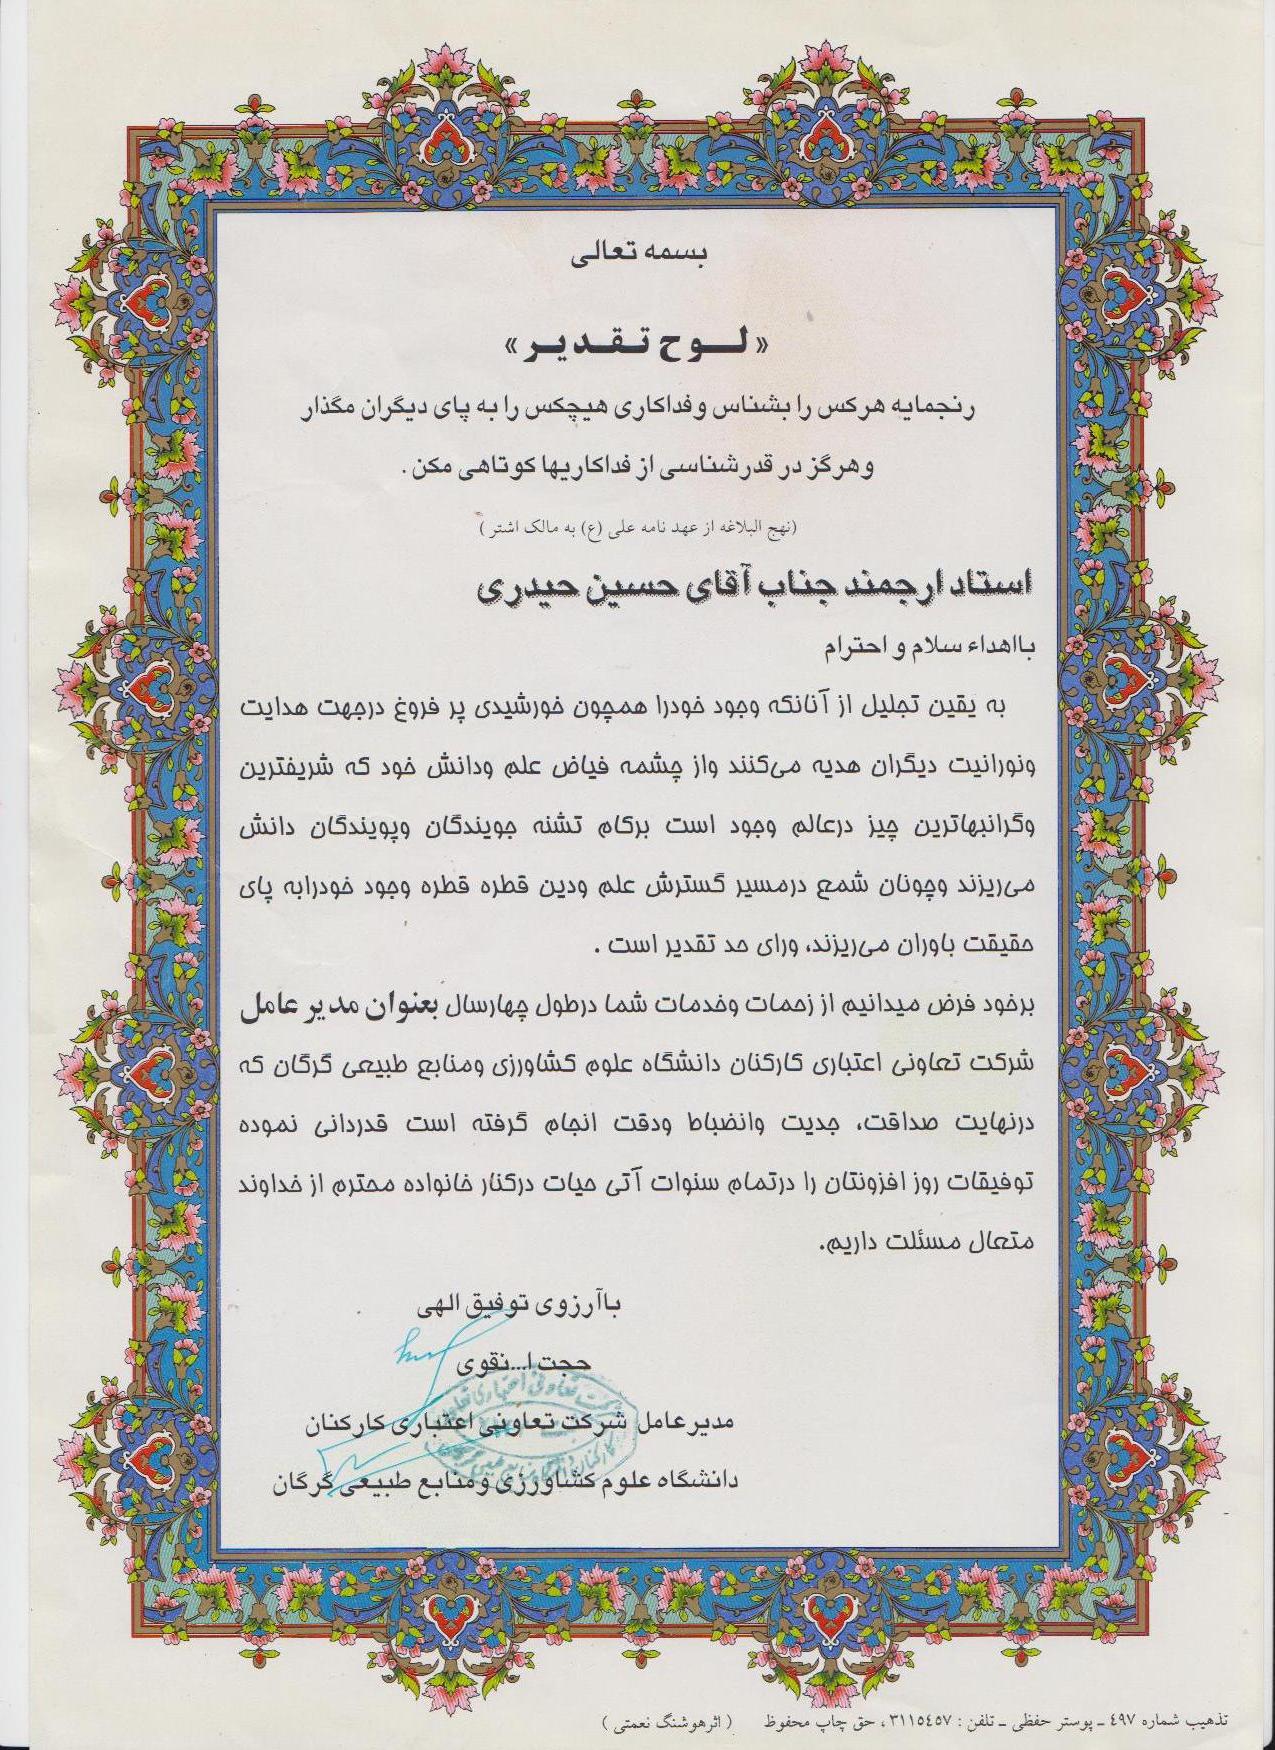 بسمه تعالی
« لــوح تـقـدیـر »
رنجمایه هرکس را بشناس وفداکاری هیچکس را به پای دیگران مگذار
وهرگز در قدرشناسی از فداکاریها کوتاهی مکن .
(نهج البلاغه از عهد نامه علی (ع) به مالک اشتر )
استاد ارجمند جناب آقای حسین حیدری
بااهداء سلام و احترام
به یقین تجلیل از آنانکه وجود خودرا همچون خورشیدی پر فروغ درجهت هدایت
ونورانیت دیگران هدیه می‌کنند واز چشمه فیاض علم ودانش خود که شریفترین
وگرانبهاترین چیز درعالم وجود است برکام تشنه جویندگان وپویندگان دانش
می‌ریزند وچونان شمع درمسیر گسترش علم ودین قطره قطره وجود خودرابه پای
حقیقت باوران می‌ریزند، ورای حد تقدیر است .
برخود فرض میدانیم از زحمات وخدمات شما درطول چهارسال بعنوان مدیر عامل
شرکت تعاونی اعتباری کارکنان دانشگاه علوم کشاورزی ومنابع طبیعی گرگان که
درنهایت صداقت، جدیت وانضباط ودقت انجام گرفته است قدردانی نموده
توفیقات روز افزونتان را درتمام سنوات آتی حیات درکنار خانواده محترم از خداوند
متعال مسئلت داریم.
باآرزوی توفیق الهی
حجت ا...نقوی
مدیرعامل شرکت تعاونی اعتباری کارکنان
دانشگاه علوم کشاورزی ومنابع طبیعی گرگان
تذهیب شماره ۴۹۷ ـ پوستر حفظی ـ تلفن : ۳۱۱۵۴۵۷ ، حق چاپ محفوظ ( اثرهوشنگ نعمتی )